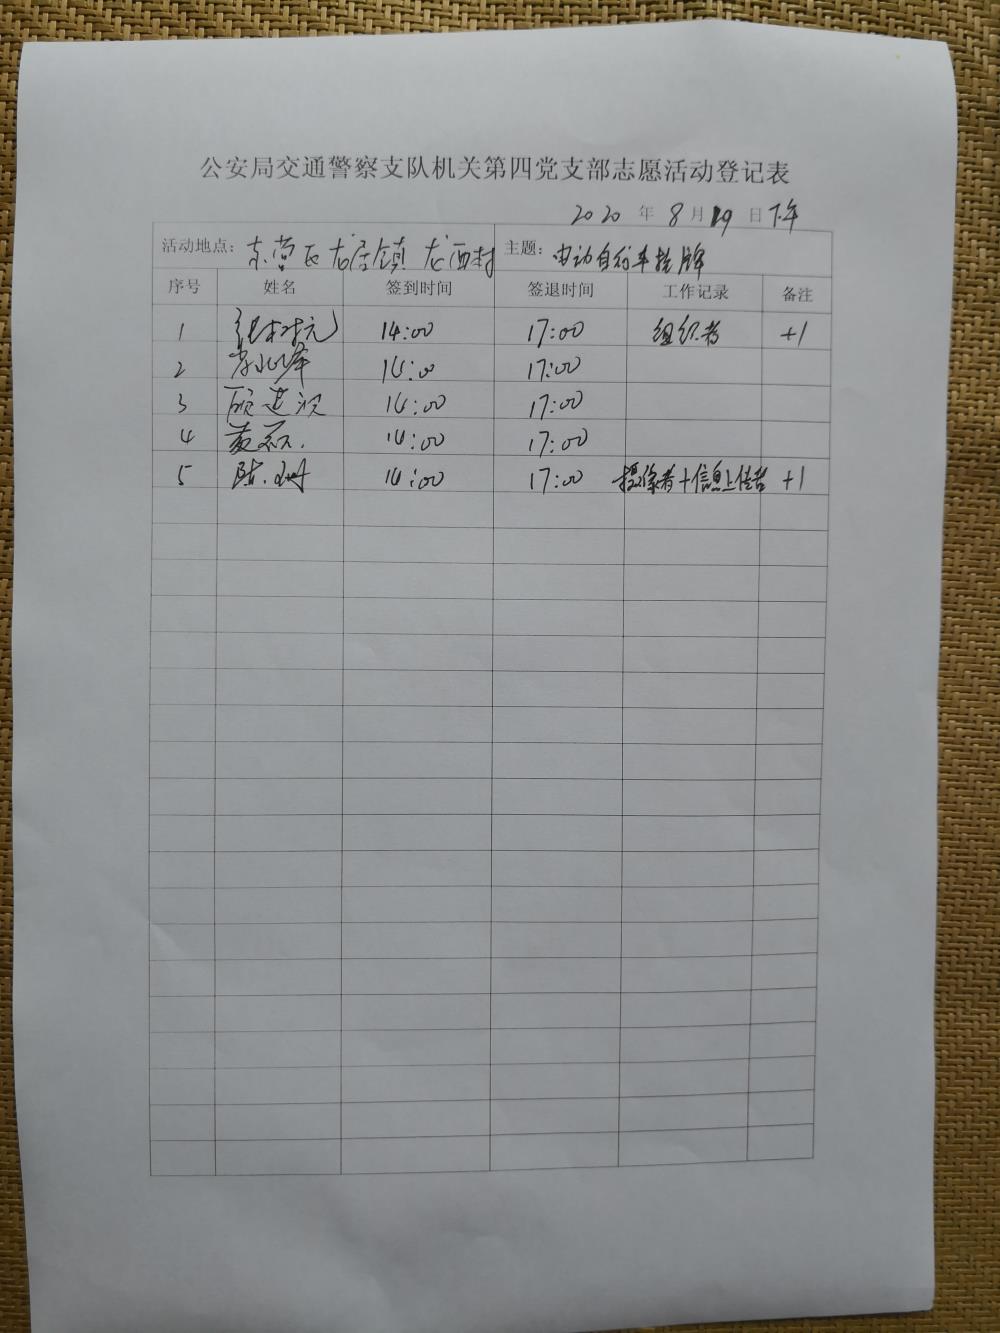 公安局交通警察支队机关第四党支部志愿活动登记表
2020 年 8 月 19 日 下午
活动地点: 东营区龙居镇 龙西村 主题: 电动自行车挂牌
序号 姓名 签到时间 签退时间 工作记录 备注
1 14:00 17:00 组织者 +1
2 14:00 17:00
3 14:00 17:00
4 黄 14:00 17:00
5 陈 14:00 17:00 摄像者+信息上传者 +1